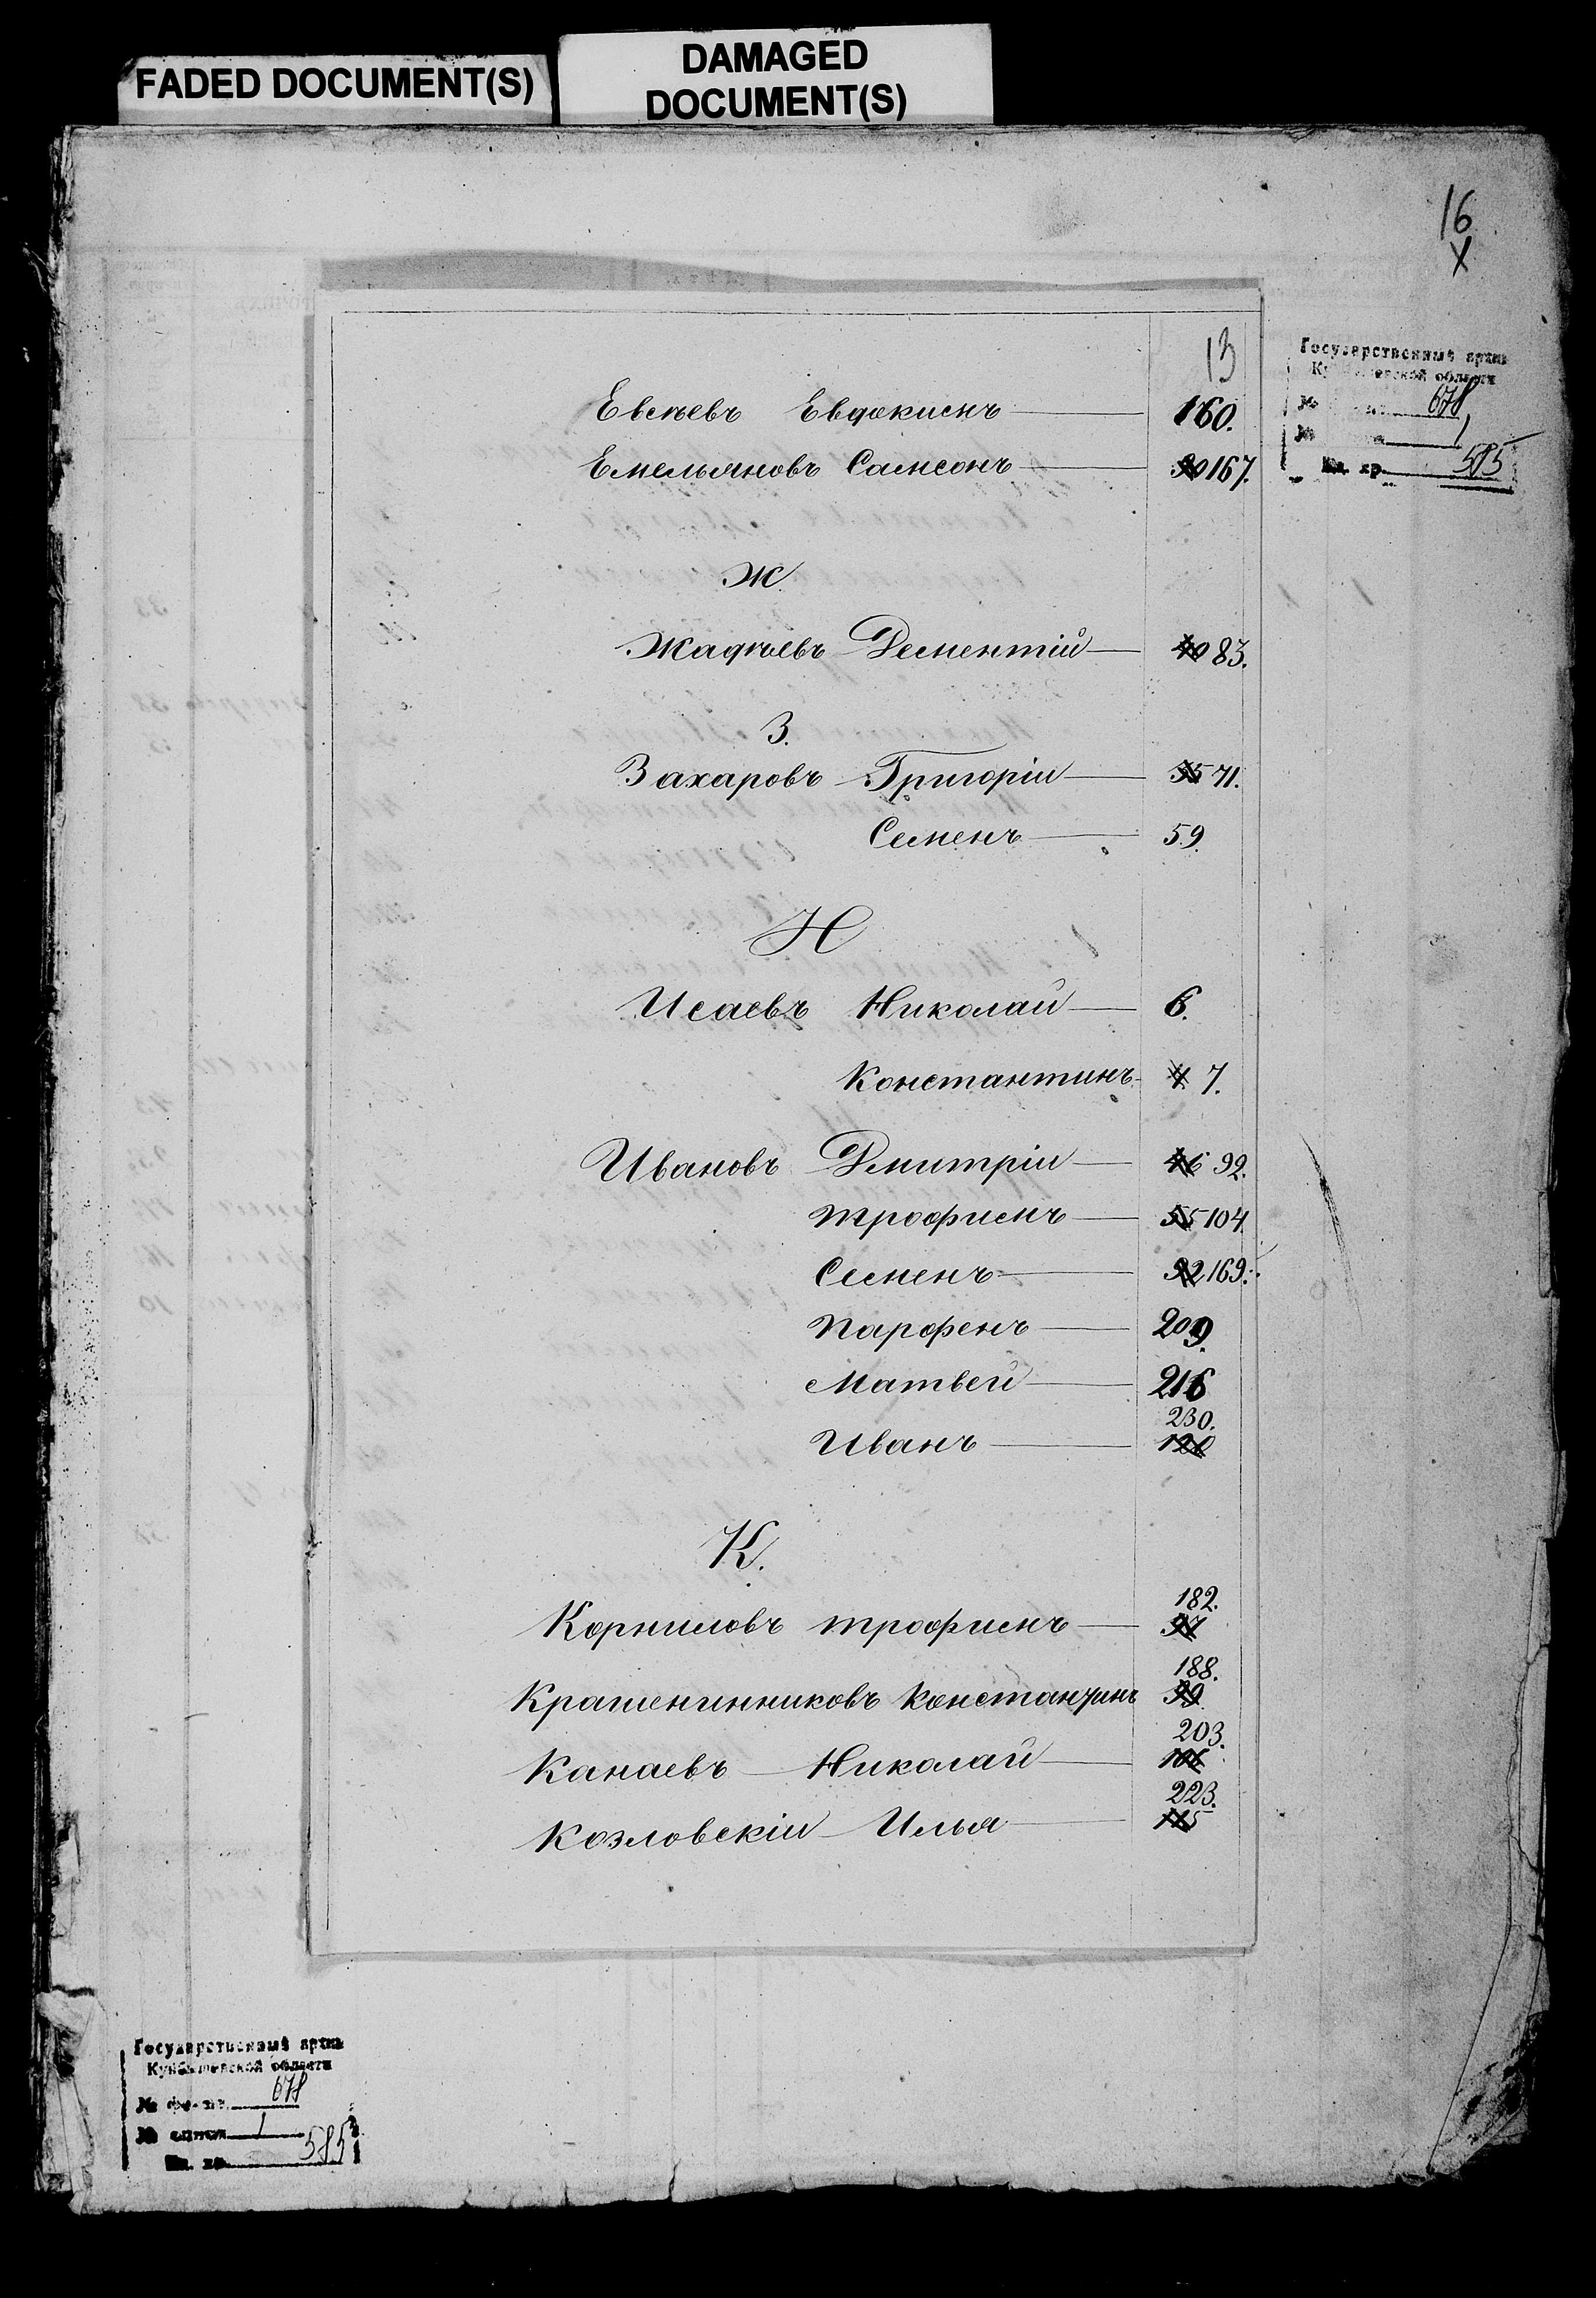 FADED DOCUMENT(S)
DAMAGED
DOCUMENT(S)
16
X
13
Государственный архив
Куйбышевской области
№ фонда 678
№ описи 1
Ед. хр. 585
Евсѣевъ Евдокимъ 160.
Емельяновъ Самсонъ 90 167.
Ж.
Жадѣевъ Дементій 40 83.
З.
Захаровъ Григорій 35 71.
Семенъ 59.
И
Исаевъ Николай 6.
Константинъ 4 7.
Ивановъ Дмитрій 46 92.
Трофимъ 55 104.
Семенъ 92 169.
Парфенъ 209.
Матвей 216
230.
Иванъ 120
К.
182.
Корниловъ Трофимъ 97
188.
Крашенинниковъ Константинъ 99
203.
Канаевъ Николай 106
223.
Козловскій Илья 115
Государственный архив
Куйбышевской области
№ фонда 678
№ описи 1
Ед. хр. 585